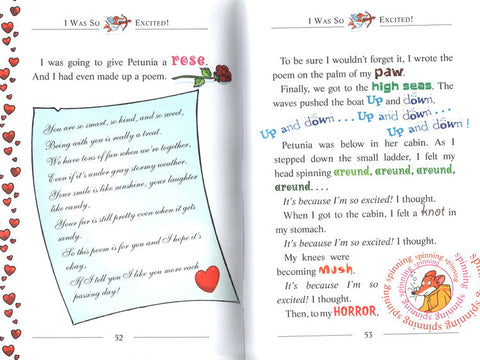 I WAS SO EXCITED!
I was going to give Petunia a rose.
And I had even made up a poem.
You are so smart, so kind, and so sweet,
Being with you is really a treat.
We have tons of fun when we're together,
Even if it's under gray stormy weather.
Your smile is like sunshine, your laughter
like candy,
Your fur is still pretty even when it gets
sandy.
So this poem is for you and I hope it's
okay,
If I tell you I like you more each
passing day!
52
I WAS SO EXCITED!
To be sure I wouldn't forget it, I wrote the
poem on the palm of my paw.
Finally, we got to the high seas. The
waves pushed the boat Up and down,
Up and down . . . Up and down . . .
Up and down!
Petunia was below in her cabin. As I
stepped down the small ladder, I felt my
head spinning around, around, around,
around. . . .
It's because I'm so excited! I thought.
When I got to the cabin, I felt a knot in
my stomach.
It's because I'm so excited! I thought.
My knees were
becoming mush.
It's because I'm so
excited! I thought.
Then, to my HORROR,
spinning spinning spinning spinning spinning spinning spinning spinning
spinning spinning
53